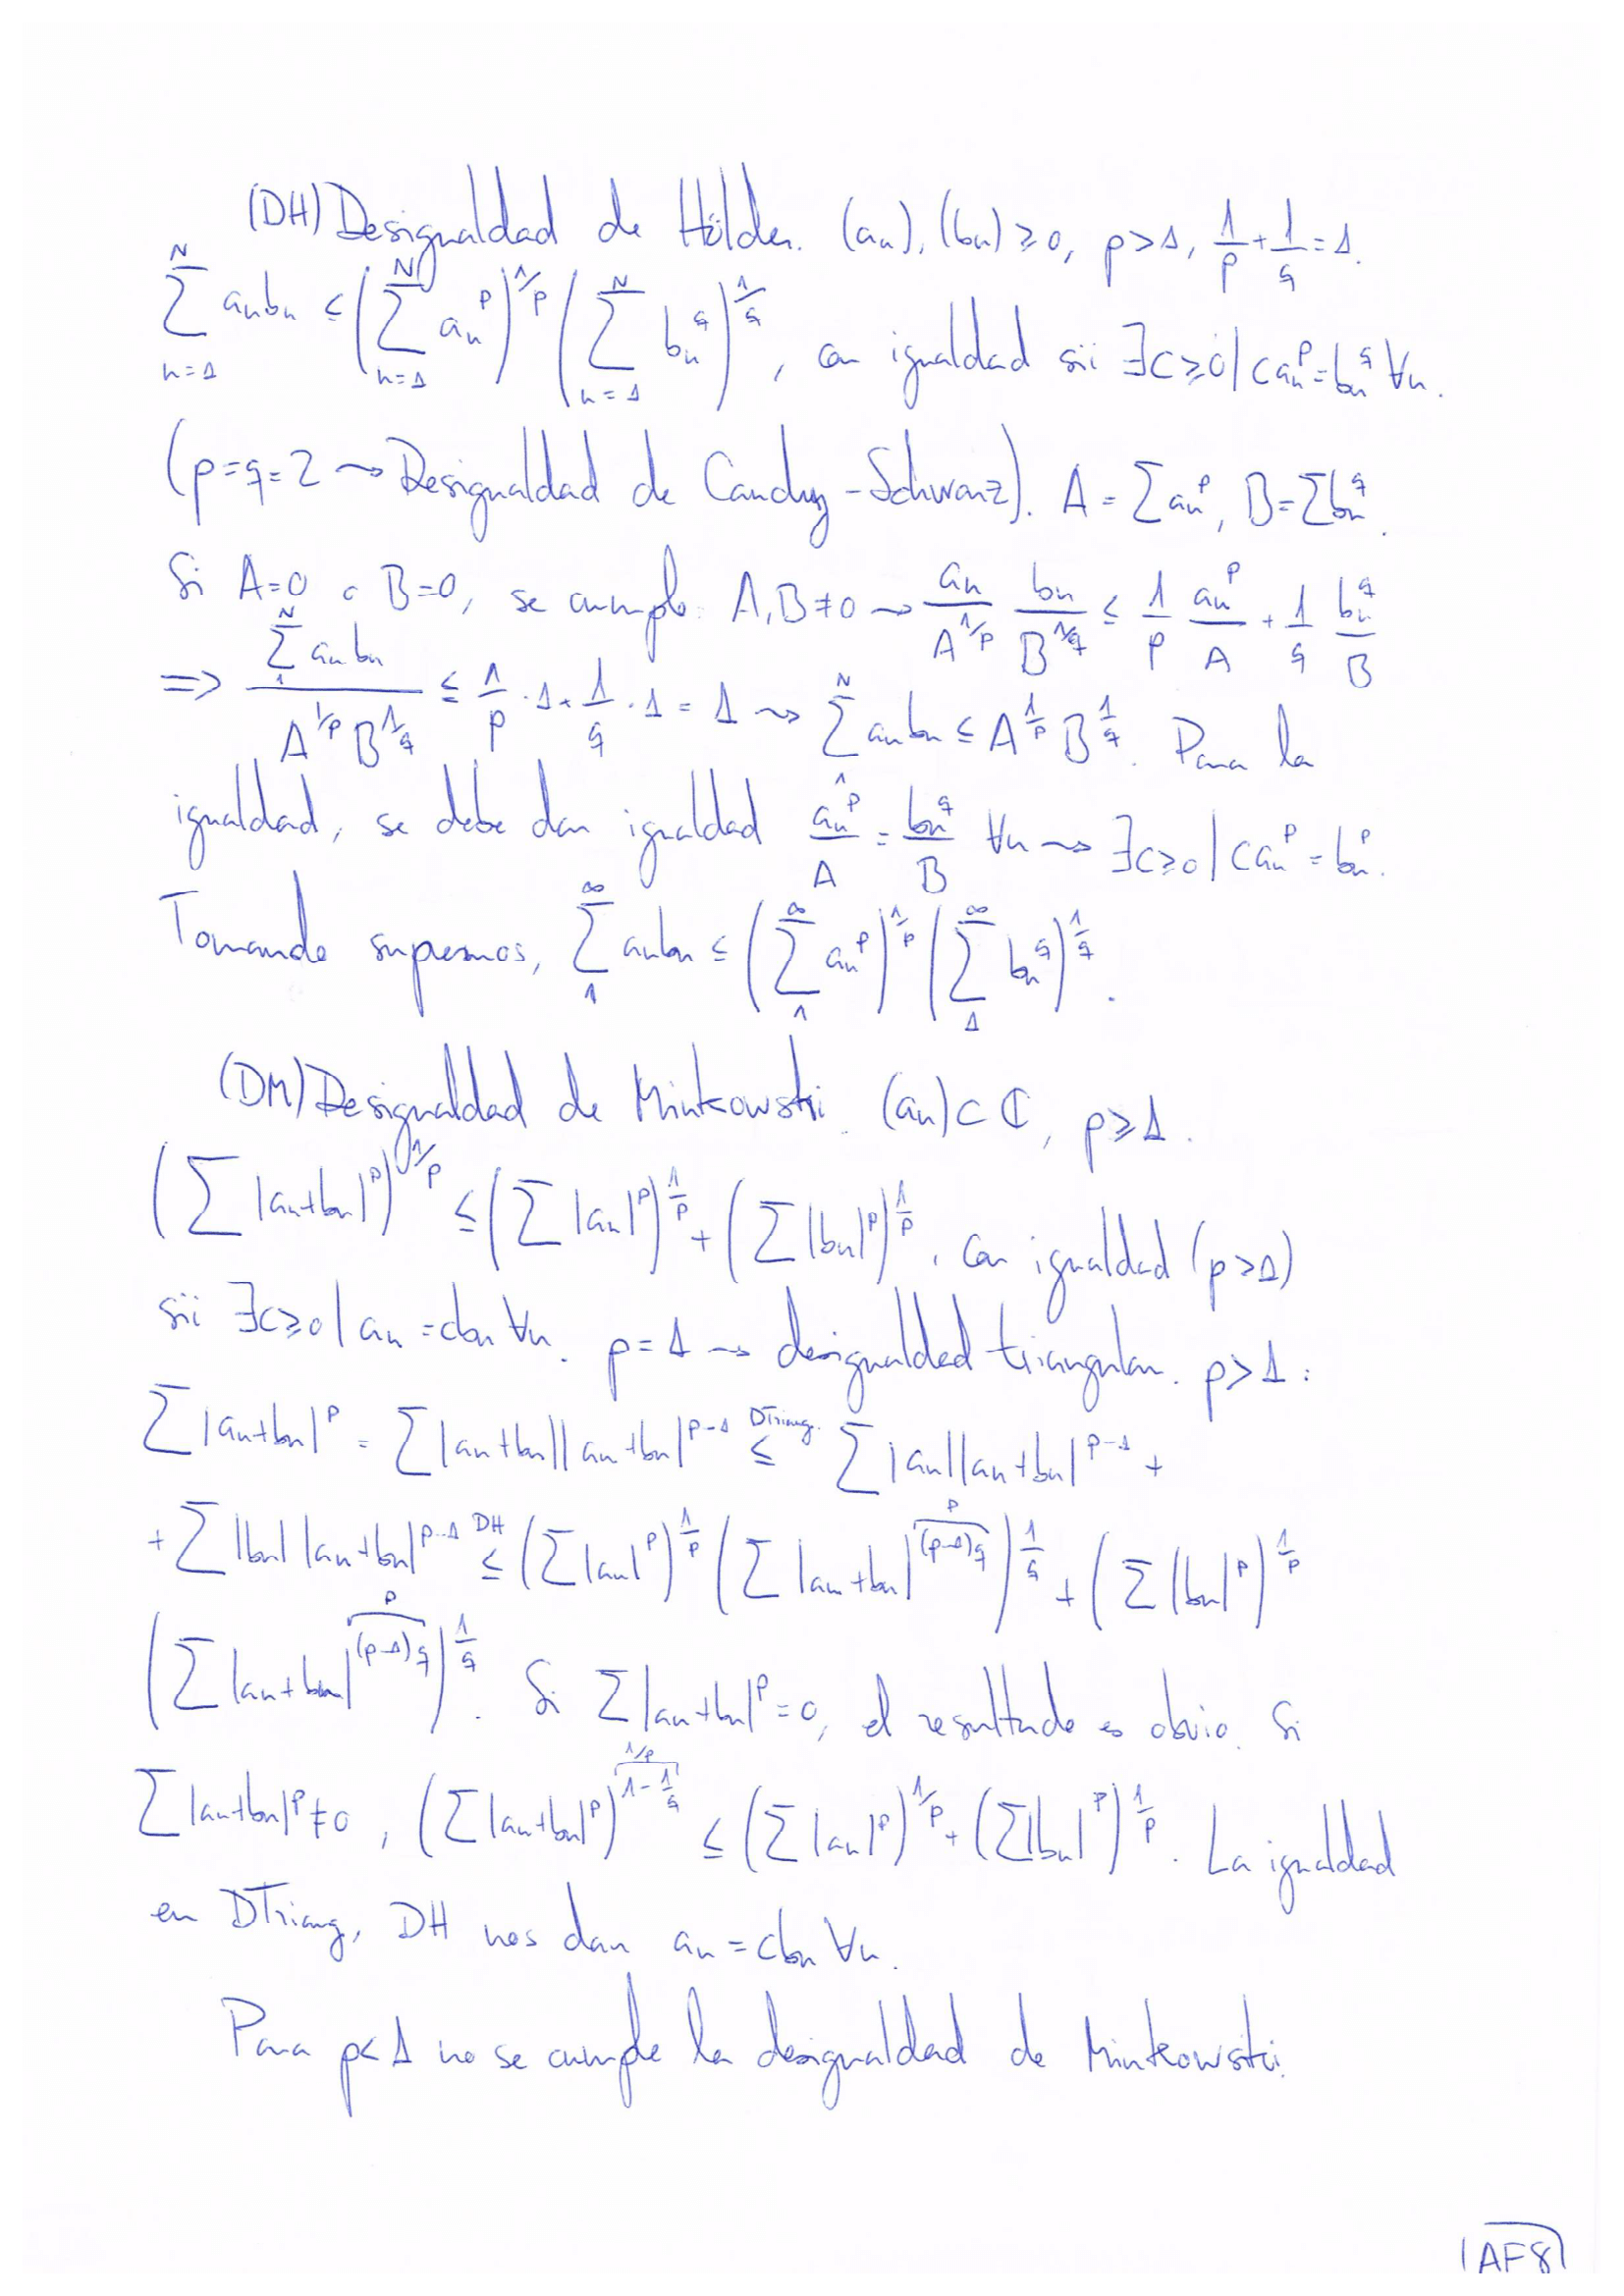 (DH) Desigualdad de Hölder. (aₙ), (bₙ) ≥ 0, p > 1, 1/p + 1/q = 1.
∑_{n=1}^{N} aₙbₙ ≤ (∑_{n=1}^{N} aₙ^p)^{1/p} (∑_{n=1}^{N} bₙ^q)^{1/q}, con igualdad sii ∃c ≥ 0 | c aₙ^p = bₙ^q ∀n.
(p = q = 2 ⇝ Desigualdad de Cauchy-Schwarz). A = ∑ aₙ^p, B = ∑ bₙ^q.
Si A = 0 o B = 0, se cumple. A, B ≠ 0 ⇝ aₙ/A^{1/p} bₙ/B^{1/q} ≤ 1/p aₙ^p/A + 1/q bₙ^q/B
⇒ (∑_{1}^{N} aₙbₙ)/(A^{1/p} B^{1/q}) ≤ 1/p · 1 + 1/q · 1 = 1 ⇝ ∑_{1}^{N} aₙbₙ ≤ A^{1/p} B^{1/q}. Para la
igualdad, se debe dar igualdad aₙ^p/A = bₙ^q/B ∀n ⇝ ∃c ≥ 0 | c aₙ^p = bₙ^p.
Tomando supremos, ∑_{1}^{∞} aₙbₙ ≤ (∑_{1}^{∞} aₙ^p)^{1/p} (∑_{1}^{∞} bₙ^q)^{1/q}.
(DM) Desigualdad de Minkowski. (aₙ) ⊂ ℂ, p ≥ 1.
(∑ |aₙ+bₙ|^p)^{1/p} ≤ (∑ |aₙ|^p)^{1/p} + (∑ |bₙ|^p)^{1/p}, con igualdad (p > 1)
sii ∃c ≥ 0 | aₙ = cbₙ ∀n. p = 1 ⇝ desigualdad triangular. p > 1:
∑ |aₙ+bₙ|^p = ∑ |aₙ+bₙ||aₙ+bₙ|^{p-1} ≤^{DTriang.} ∑ |aₙ||aₙ+bₙ|^{p-1} +
+ ∑ |bₙ||aₙ+bₙ|^{p-1} ≤^{DH} (∑ |aₙ|^p)^{1/p} (∑ |aₙ+bₙ|^{\overbrace{(p-1)q}^{p}})^{1/q} + (∑ |bₙ|^p)^{1/p}
(∑ |aₙ+bₙ|^{\overbrace{(p-1)q}^{p}})^{1/q}. Si ∑ |aₙ+bₙ|^p = 0, el resultado es obvio. Si
∑ |aₙ+bₙ|^p ≠ 0, (∑ |aₙ+bₙ|^p)^{\overbrace{1-1/q}^{1/p}} ≤ (∑ |aₙ|^p)^{1/p} + (∑ |bₙ|^p)^{1/p}. La igualdad
en DTriang, DH nos dan aₙ = cbₙ ∀n.
Para p < 1 no se cumple la desigualdad de Minkowski.
AF8